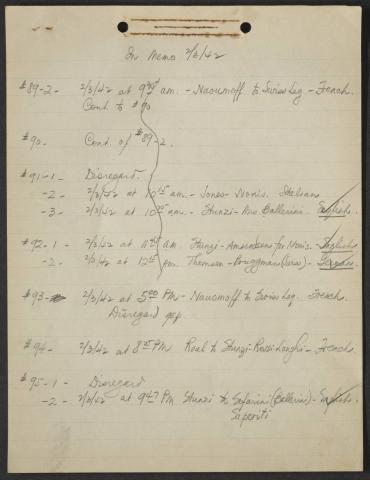 In Memo 2/3/42
#89-2- 2/3/42 at am. - Naoumoff to Swiss Leg. - French.
Cont. to #90
#90- Cont. of #89-2.
#91-1- Disregard.
-2- 2/3/42 at 10 am. - Jones - Italian
-3- 2/3/42 at 10 am. - Stunzi - Mrs. Ballerini - English.
#92-1- 2/3/42 at 11 am. Stunzi - for - English
-2- 2/3/42 at 12 pm. Thomsen - Bruggmann (Swiss) - German.
#93- 2/3/42 at 5 00 PM - Naoumoff to Swiss Leg. French.
Disregard
#94- 2/3/42 at 8 25 PM Real to Stunzi - Rossi-Longhi - French.
#95-1- Disregard
-2- 2/3/42 at 9 47 PM Stunzi to (Ballerini) - English.
Saporiti